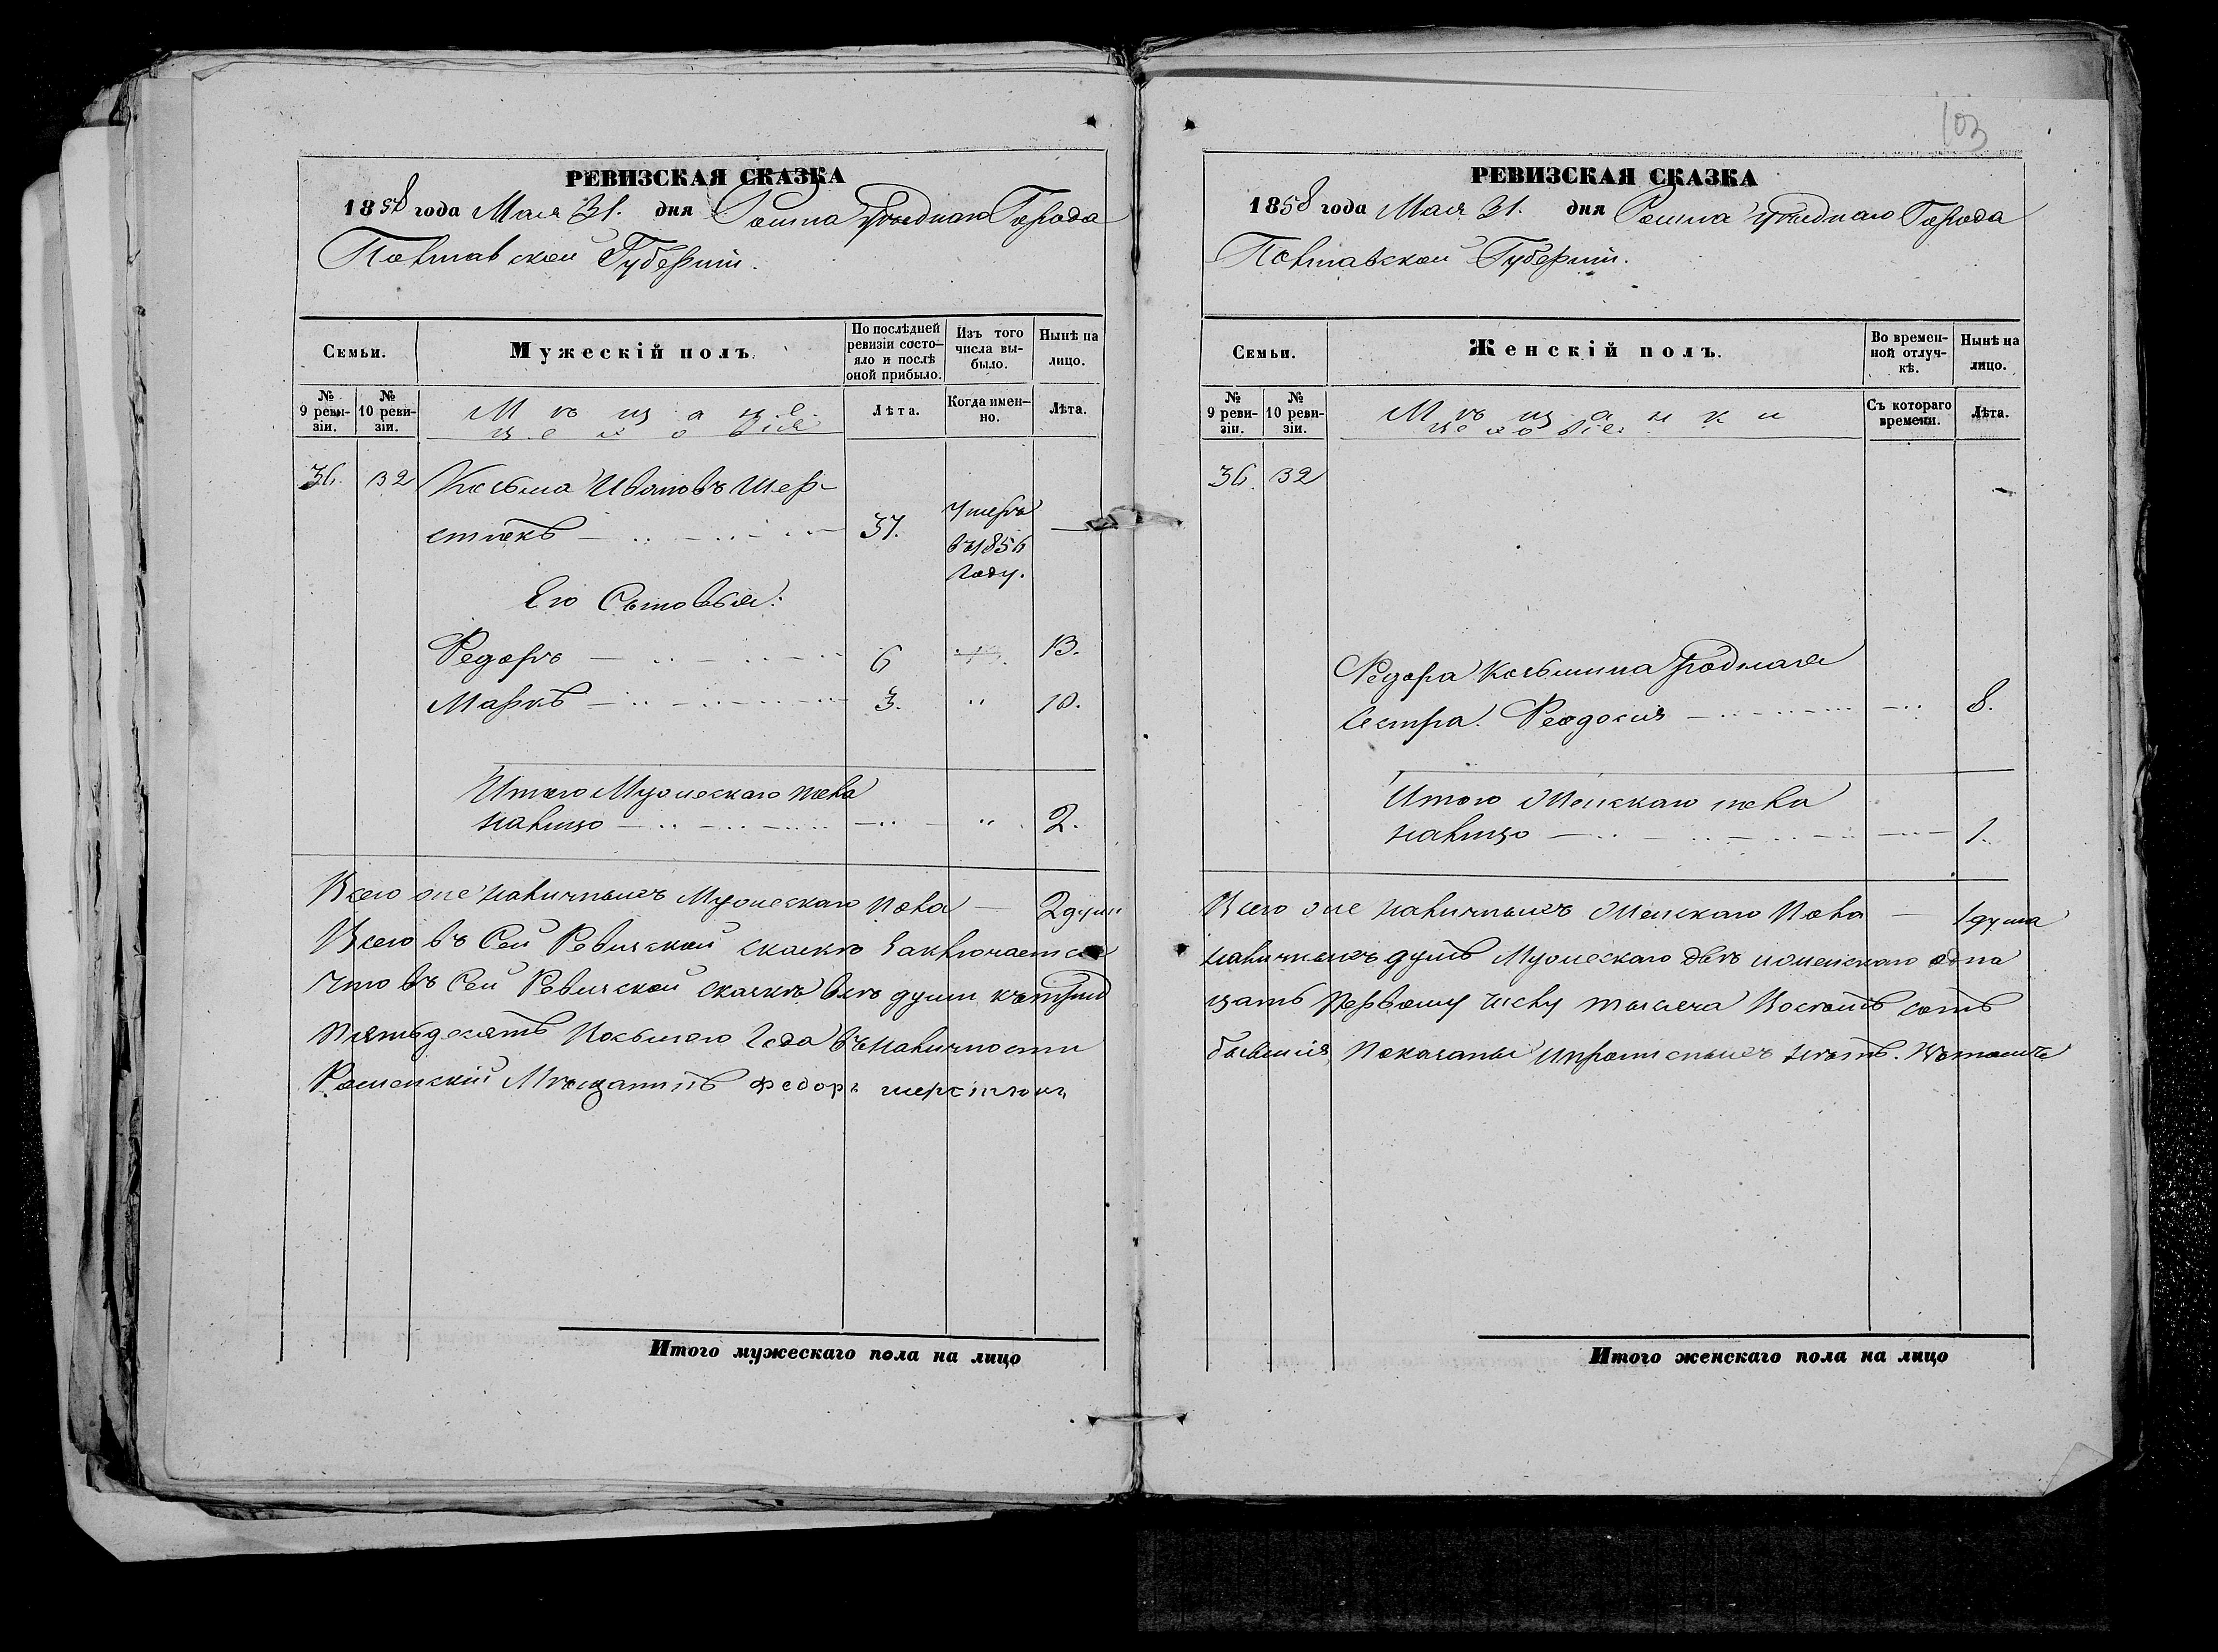 РЕВИЗСКАЯ СКАЗКА
1858 года Мая 31. дня Ромна уѣзднаго Города
Полтавской Губерніи.
Семьи.
Мужескій полъ.
По послѣдней ревизіи состо-
яло и послѣ
оной прибыло.
Изъ того
числа вы-
было.
Нынѣ на
лицо.
№
9 реви-
зіи.
№
10 реви-
зіи.
Мѣщане
Лѣта.
Когда имен-
но.
Лѣта.
36. 32 Козьма Ивановъ Шер-
стюкъ 37. Умеръ въ 1856 Году. —
Его Сыновья:
Федоръ 6 13.
Маркъ 3. " 10.
Итого Мужескаго пола
налицо " 2.
Всего же наличныхъ Мужескаго пола — 2 души
Всего въ Сей Ревизской сказкѣ Заключается
Что въ Сей Ревизской сказкѣ всѣ души къ трид
Пятьдесятъ Восьмого Года въ наличности
Роменскій Мѣщанинъ Федоръ Шерстюкъ
103
РЕВИЗСКАЯ СКАЗКА
1858 года Мая 31. дня Ромна уѣзднаго Города
Полтавской Губерніи.
Семьи.
Женскій полъ.
Во времен-
ной отлуч-
кѣ.
Нынѣ на
лицо.
№
9 реви-
зіи.
№
10 реви-
зіи.
Мѣщанки
Съ котораго
времени.
Лѣта.
36. 32
Федора Козьмина родная
Сестра. Феодосия 8.
Итого Женскаго пола
налицо 1.
Всего же наличныхъ Женскаго Пола — 1 душа
наличныхъ душъ Мужескаго двѣ и женскаго одна
цать Первому числу тысяча Восемь сотъ
бывшия, Показаны и прописныхъ нѣтъ. Въ томъ
Итого мужескаго пола на лицо
Итого женскаго пола на лицо